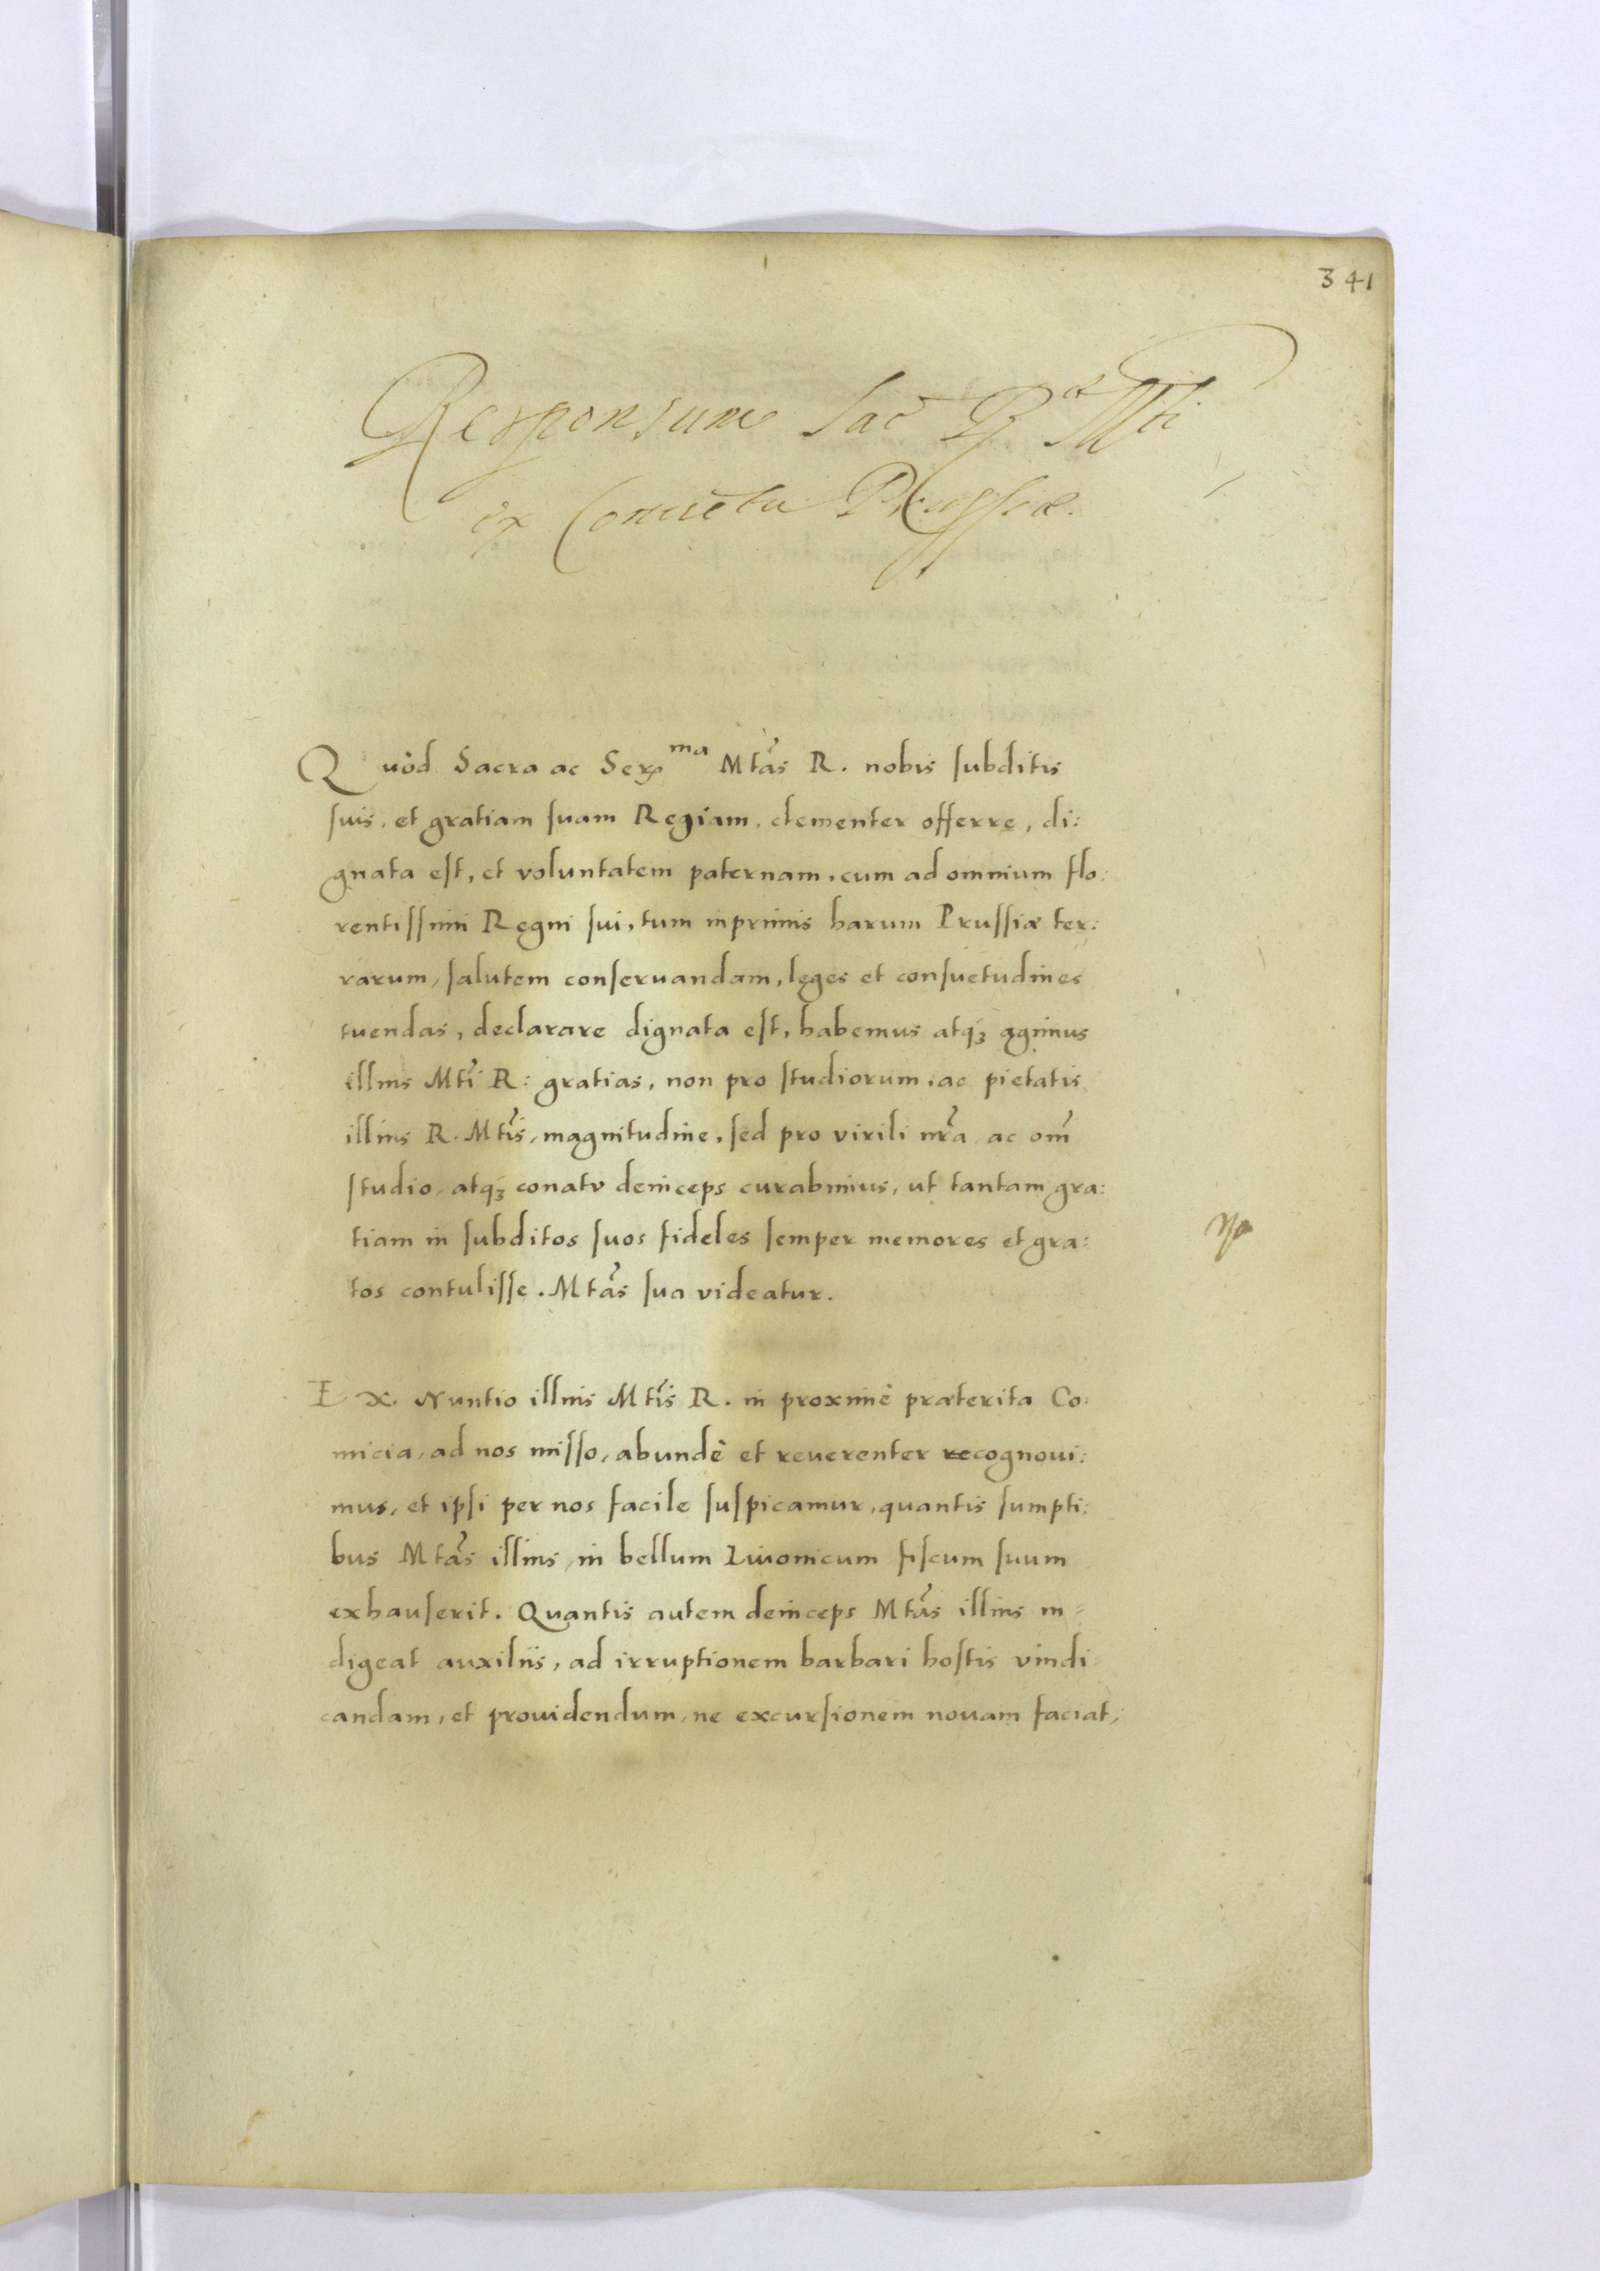 341
Responsum Sac R. Mti
ex Conuētu Prussiæ.
Quòd Sacra ac Ser^ma Mtãs R. nobis ſubditis
ſuis, et gratiam ſuam Regiam, clementer offerre, di:
gnata eſt, et voluntatem paternam, cum ad omnium flo:
rentiſſimi Regni ſui, tum inprimis harum Pruſſiæ ter:
rarum, ſalutem conſeruandam, lęges et conſuetudines
tuendas, declarare dignata eſt, habemus atqꝫ agimus
illius Mtĩ R: gratias, non pro ſtudiorum, ac pietatis
illius R. Mtĩs, magnitudine, ſed pro virili nr̃a, ac om̃
ſtudio, atqꝫ conatu deinceps curabimus, ut tantam gra:
tiam in ſubditos ſuos fideles ſemper memores et gra:
tos contuliſſe. Mtãs ſua videatur.
Ex Nuntio illius Mtĩs R. in proximè præterita Co:
micia, ad nos miſſo, abundè et reuerenter recognoui:
mus, et ipſi per nos facile ſuſpicamur, quantis ſumpti:
bus Mtãs illius, in bellum Liuonicum fiſcum ſuum
exhauſerit. Quantis autem deinceps Mtãs illius in=
digeat auxiliis, ad irruptionem barbari hoſtis vindi
candam, et prouidendum, ne excurſionem nouam faciat,